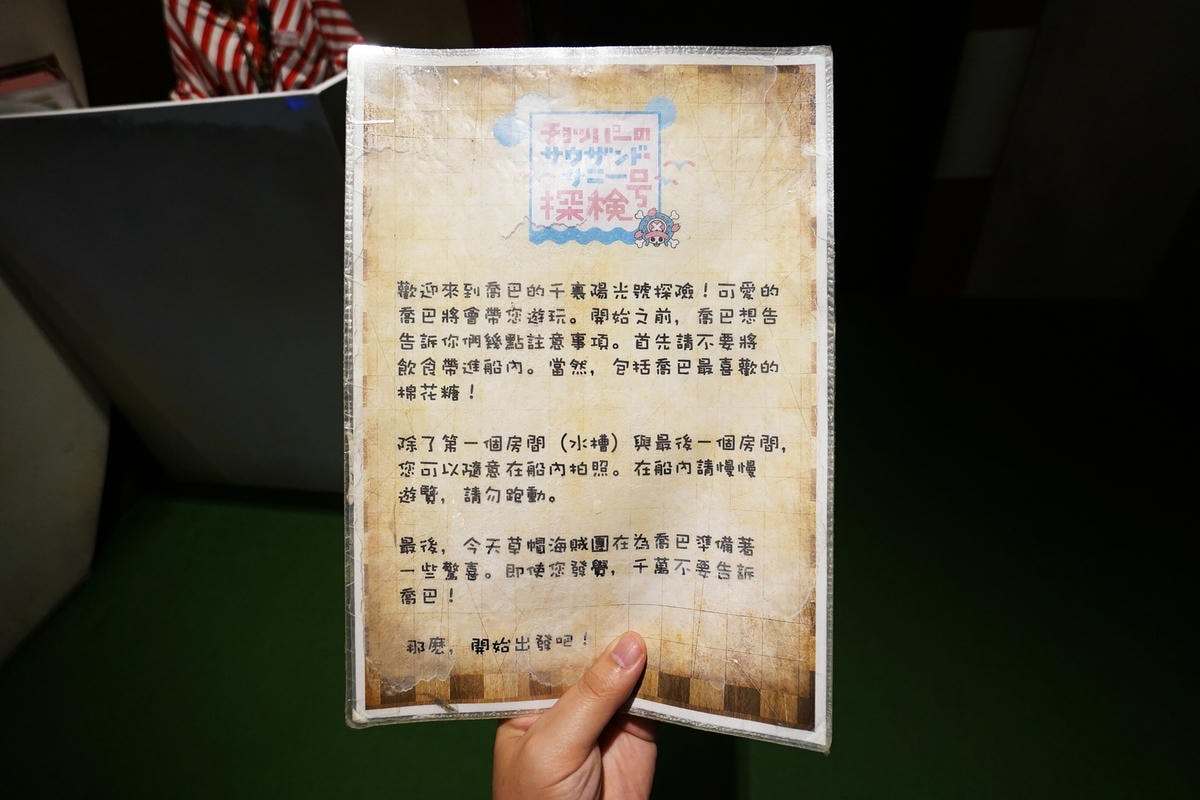 チョッパーの
サウザンド・
サニー号
探検
歡迎來到喬巴的千裏陽光號探險！可愛的
喬巴將會帶您遊玩。開始之前，喬巴想告
告訴你們幾點註意事項。首先請不要將
飲食帶進船內。當然，包括喬巴最喜歡的
棉花糖！
除了第一個房間（水槽）與最後一個房間，
您可以隨意在船內拍照。在船內請慢慢
遊覽，請勿跑動。
最後，今天草帽海賊團在為喬巴準備著
一些驚喜。即使您發覺，千萬不要告訴
喬巴！
那麽，開始出發吧！